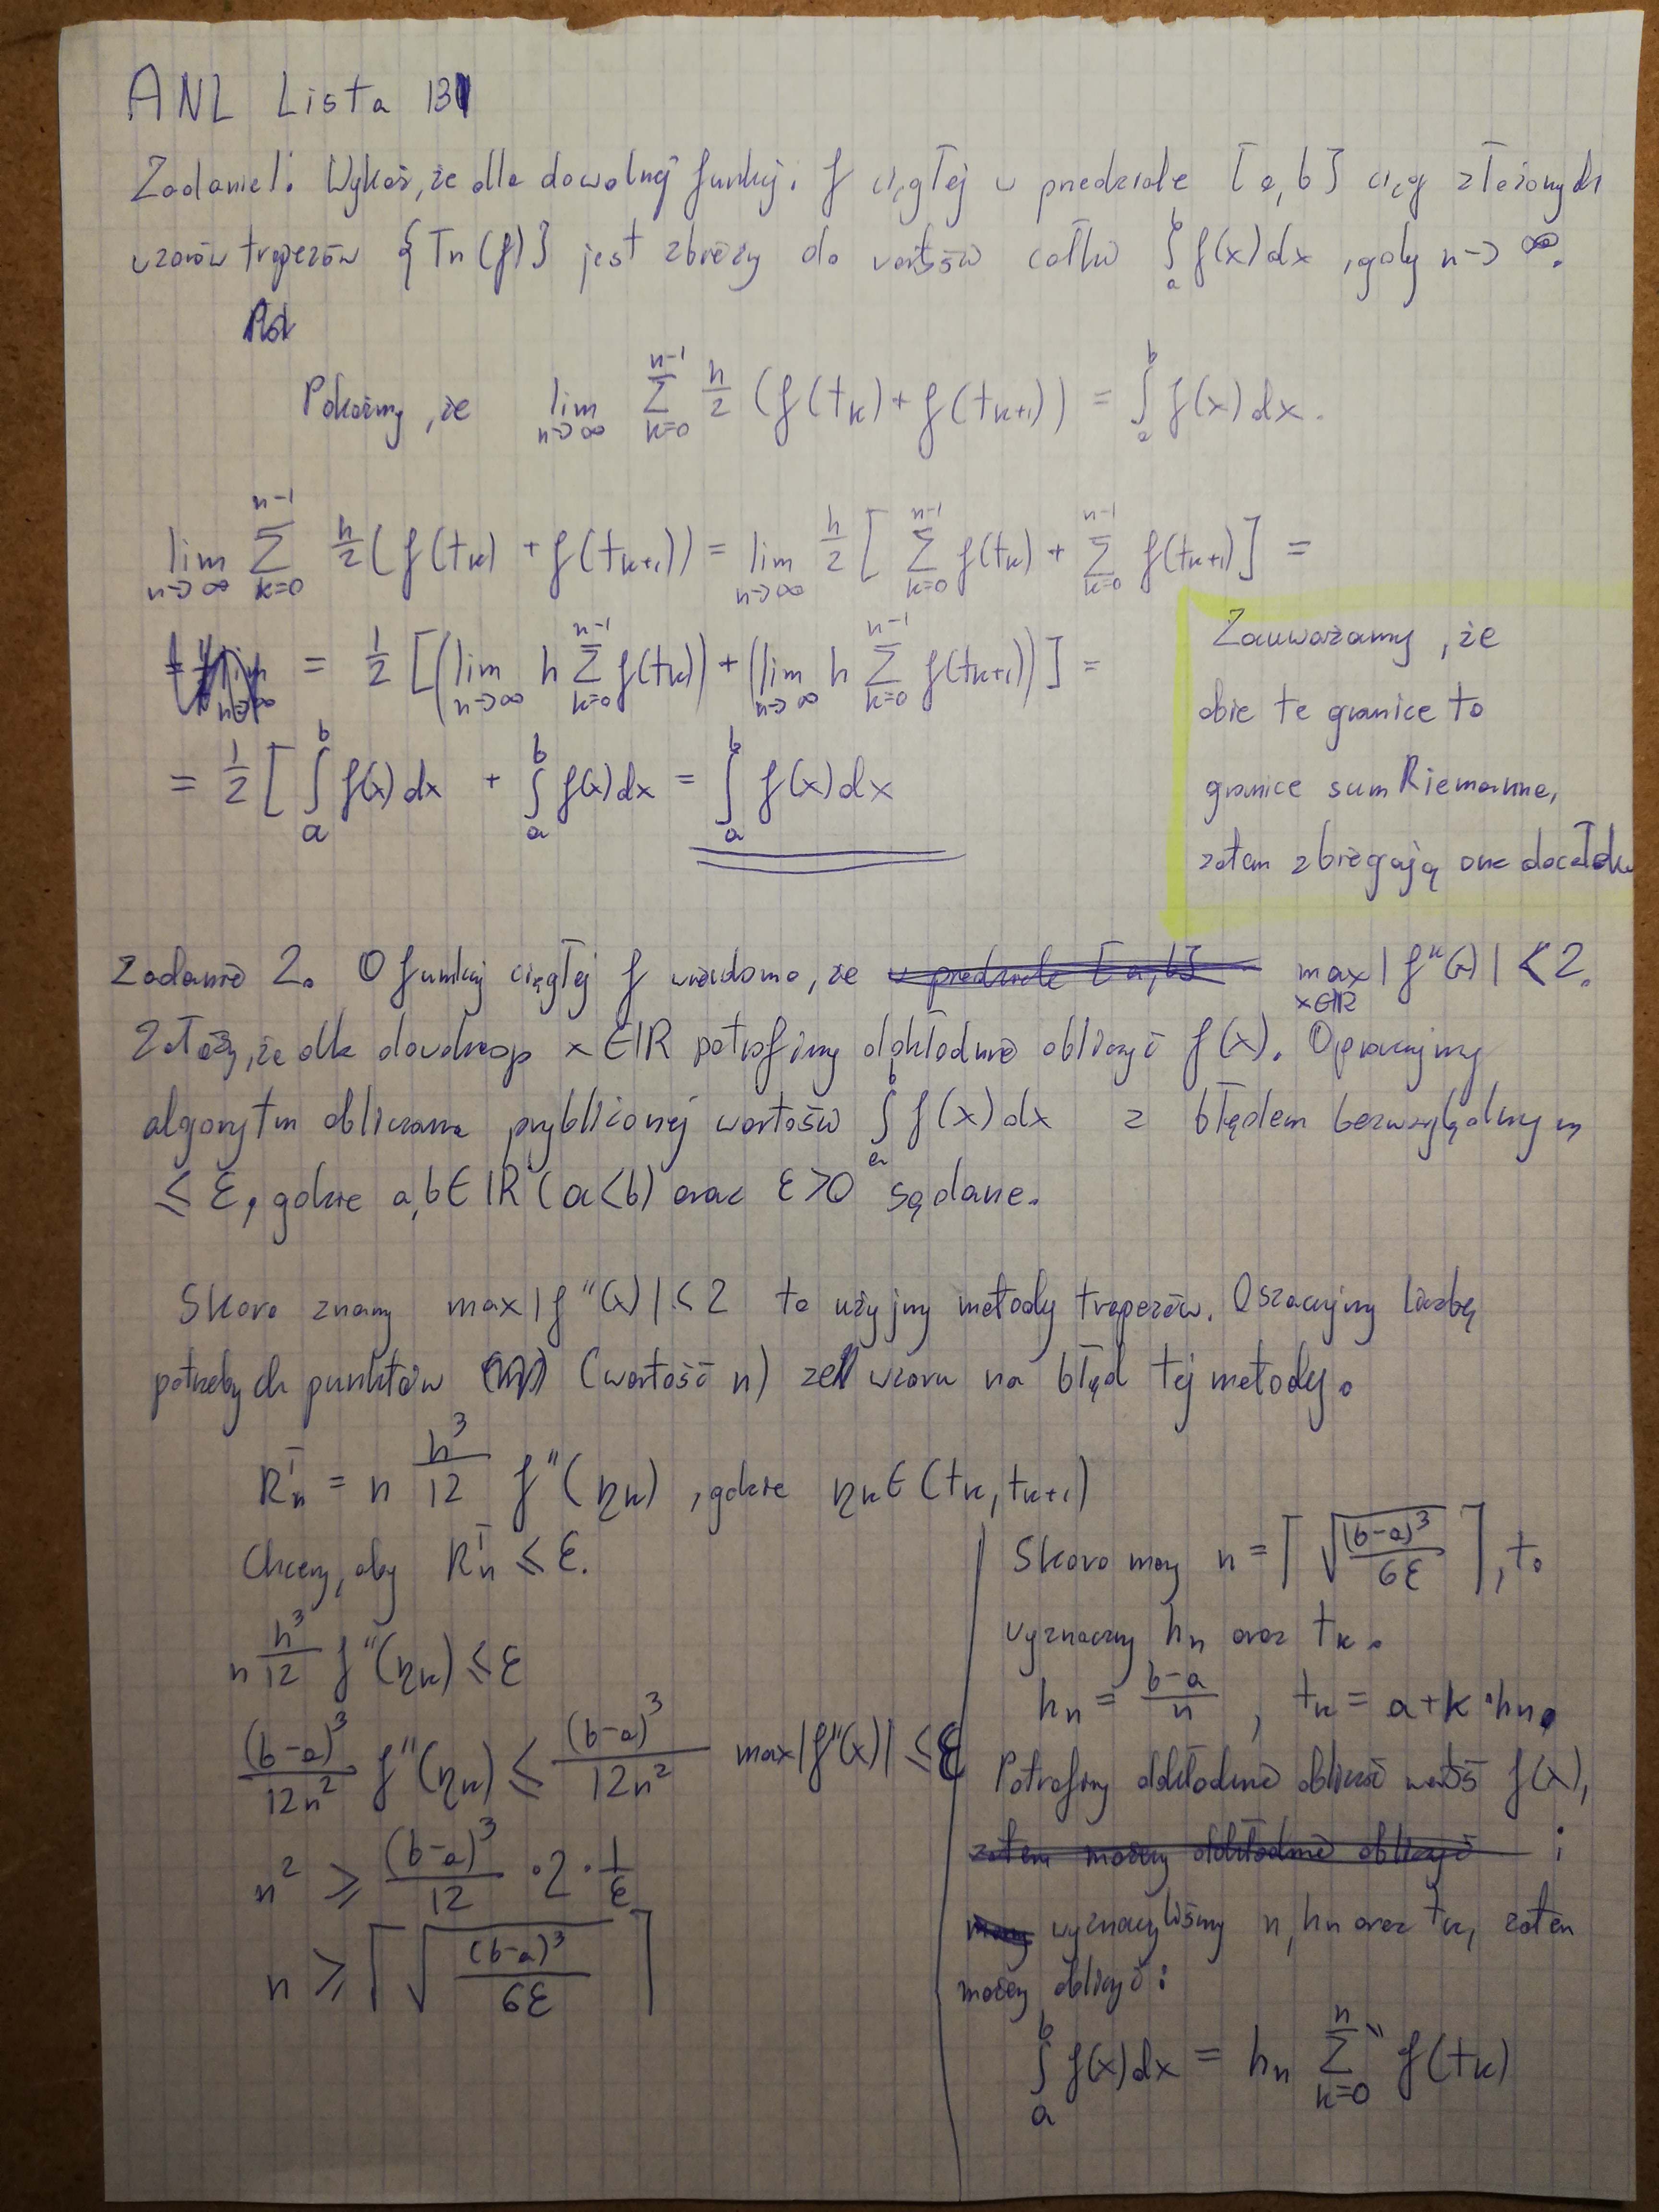 ANL Lista 13
Zadanie 1. Wykaż, że dla dowolnej funkcji f ciągłej w przedziale [a,b] ciąg złożonych
wzorów trapezów {Tn(f)} jest zbieżny do wartości całki ∫_a^b f(x)dx, gdy n→∞.
Pokażmy, że lim_{n→∞} ∑_{k=0}^{n-1} h/2 (f(t_k)+f(t_{k+1})) = ∫_a^b f(x)dx.
lim_{n→∞} ∑_{k=0}^{n-1} h/2 (f(t_k)+f(t_{k+1})) = lim_{n→∞} h/2 [∑_{k=0}^{n-1} f(t_k) + ∑_{k=0}^{n-1} f(t_{k+1})] =
= 1/2 [(lim_{n→∞} h ∑_{k=0}^{n-1} f(t_k)) + (lim_{n→∞} h ∑_{k=0}^{n-1} f(t_{k+1}))] =
= 1/2 [∫_a^b f(x)dx + ∫_a^b f(x)dx = ∫_a^b f(x)dx
Zauważamy, że
obie te granice to
granice sum Riemanna,
zatem zbiegają one do całki
Zadanie 2. O funkcji ciągłej f wiadomo, że max_{x∈ℝ} |f''(x)| < 2.
Załóżmy, że dla dowolnego x∈ℝ potrafimy dokładnie obliczyć f(x). Opracujmy
algorytm obliczania przybliżonej wartości ∫_a^b f(x)dx z błędem bezwzględnym
≤ ε, gdzie a,b∈ℝ (a<b) oraz ε>0 są dane.
Skoro znamy max|f''(x)|≤2 to użyjmy metody trapezów. Oszacujmy liczbę
potrzebych punktów (wartość n) ze wzoru na błąd tej metody.
R_n^T = n h³/12 f''(η_k), gdzie η_k∈(t_k,t_{k+1})
Chcemy, aby R_n^T ≤ ε.
n h³/12 f''(η_k) ≤ ε
(b-a)³/12n² f''(η_k) ≤ (b-a)³/12n² max|f''(x)| ≤ ε
n² ≥ (b-a)³/12 · 2 · 1/ε
n ≥ ⌈√((b-a)³/6ε)⌉
Skoro mamy n = ⌈√((b-a)³/6ε)⌉, to
wyznaczmy h_n oraz t_k.
h_n = (b-a)/n, t_k = a+k·h_n.
Potrafimy dokładnie obliczać wartość f(x),
i
wyznaczyliśmy n, h_n oraz t_k, zatem
możemy obliczyć:
∫_a^b f(x)dx = h_n ∑''_{k=0}^{n} f(t_k)